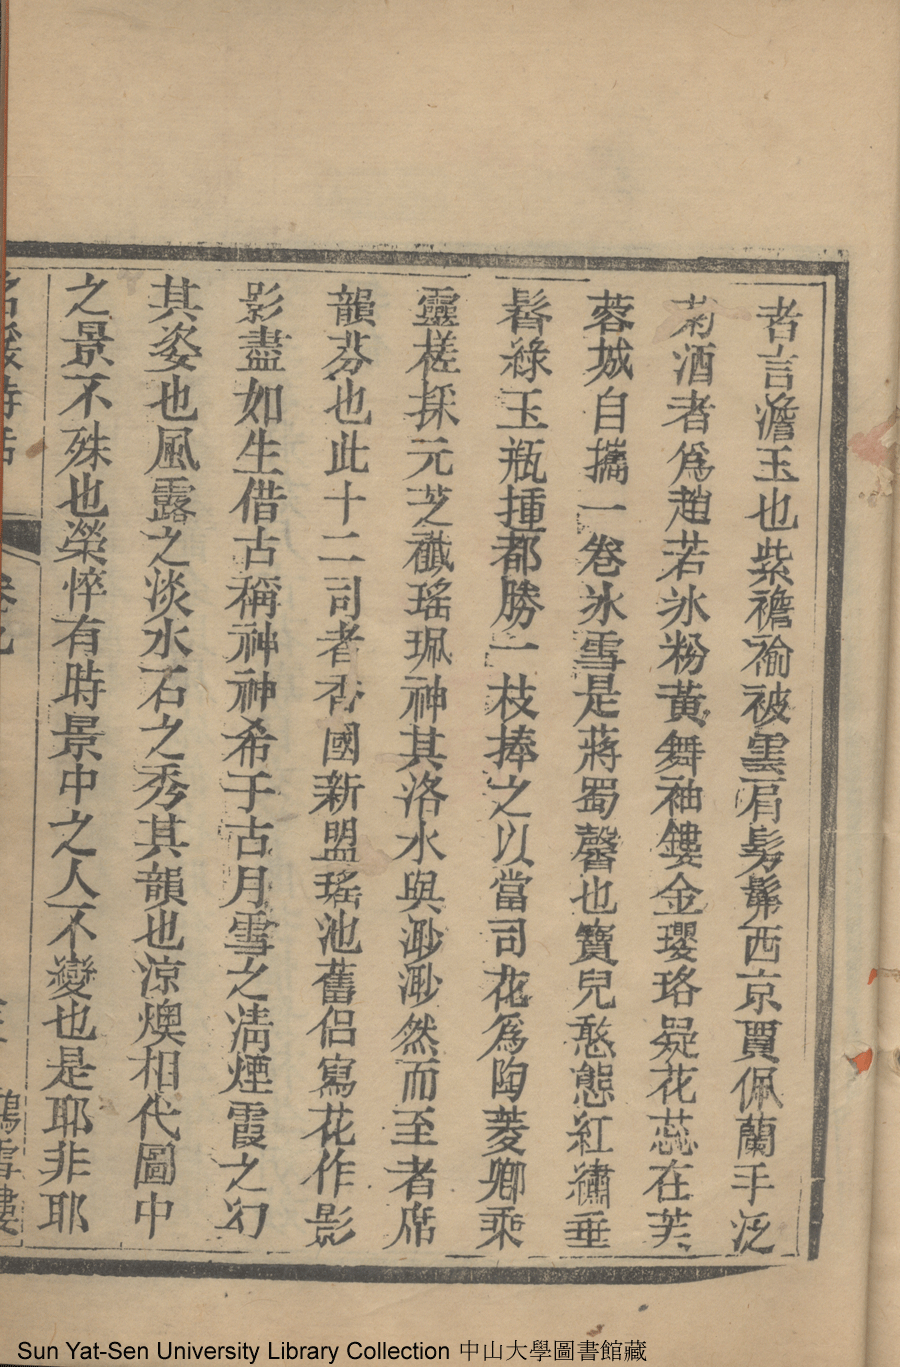 者言澹玉也紫襜褕被雲肩髣髴西京賈佩蘭手泛
菊酒者爲趙若氷粉黃舞袖鏤金瓔珞疑花蕊在芙
蓉城自攜一卷氷雪是蔣蜀馨也寶兒憨態紅繡垂
髫綠玉瓶揰都勝一枝捧之以當司花爲陶菱卿乘
靈槎採元芝襳瑤珮神其洛水與渺渺然而至者席
韻芬也此十二司者香國新盟瑤池舊侶寫花作影
影盡如生借古稱神神希于古月雪之淸煙霞之幻
其姿也風露之淡水石之秀其韻也涼燠相代圖中
之景不殊也榮悴有時景中之人不變也是耶非耶
名媛詩話
卷九
鴻雪樓
Sun Yat-Sen University Library Collection 中山大學圖書館藏